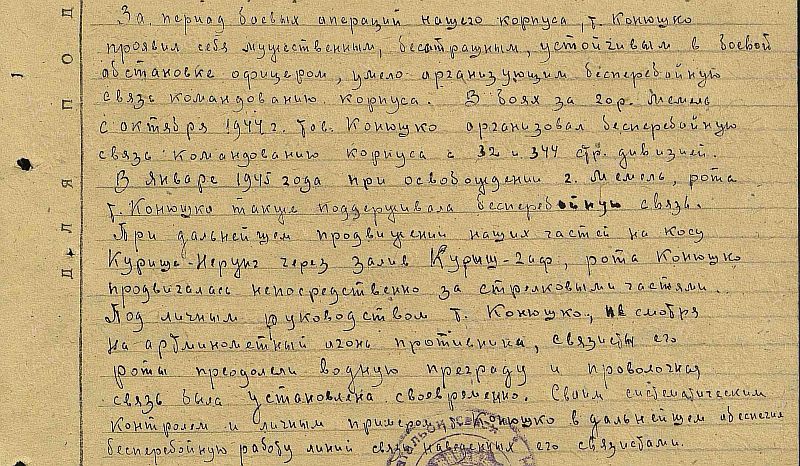 За период боевых операций нашего корпуса, т. Конюшко
проявил себя мужественным, бесстрашным, устойчивым в боевой
обстановке офицером, умело организующим бесперебойную
связь командованию корпуса. В боях за гор. Мемель
с октября 1944 г. тов. Конюшко организовал бесперебойную
связь командованию корпуса с 32 и 344 стр. дивизией.
В январе 1945 года при освобождении г. Мемель, рота
т. Конюшко также поддерживала бесперебойную связь.
При дальнейшем продвижении наших частей на косу
Курише-Нерунг через залив Куриш-гаф, рота Конюшко
продвигалась непосредственно за стрелковыми частями.
Под личным руководством т. Конюшко, не смотря
на артминометный огонь противника, связисты его
роты преодолели водную преграду и проволочная
связь была установлена своевременно. Своим систематическим
контролем и личным примером т. Конюшко в дальнейшем обеспечил
бесперебойную работу линий связи наведенных его связистами.
Д Л Я П О Д
1